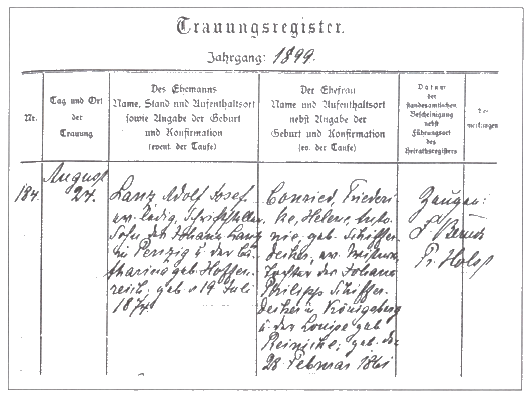 Trauungsregister.
Jahrgang: 1899.
Nr.
Tag und Ort
der
Trauung
Des Ehemanns
Name, Stand und Aufenthaltsort
sowie Angabe der Geburt
und Konfirmation
(event. der Taufe)
Der Ehefrau
Name und Aufenthaltsort
nebst Angabe der
Geburt und Konfirmation
(ev. der Taufe)
Datum
der
standesamtlichen
Bescheinigung
nebst
Führungsort
des
Heirathsregisters
Be-
merkungen
184.
August
24.
Lanz, Adolf Josef
ev. ledig, Schriftsteller
Sohn des Johann Lanz
in Penzig u der Ca-
tharina geb Hoffen-
reich; geb. 19 Juli
1874.
Conried, Friederi-
ke, Helene, Anto-
nie, geb. Schiffen-
decker, ev. Wittwe,
Tochter des Johann
Philipp Schiffen-
decker u Königsberg
u der Louise geb
Reinicke; geb. den
28 Februar 1861
Zeugen:
Fr. Holst